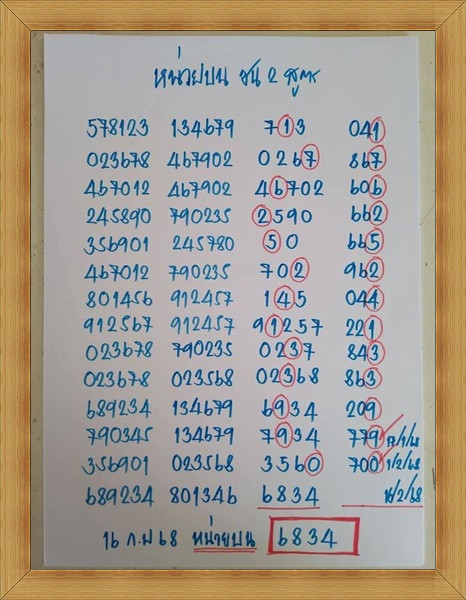 หน่วยบน ชน 2 สูตร
578123 134679 713 041
023678 467902 0267 867
467012 467902 46702 606
245890 790235 2590 662
356901 245780 50 665
467012 790235 702 962
801456 912457 145 044
912567 912457 91257 221
023678 790235 0237 843
023678 023568 02368 863
689234 134679 6934 209
790345 134679 7934 779 17/1/68
356901 023568 3560 700 1/2/68
689234 801346 6834 16/2/68
16 ก.พ 68 หน่วยบน 6834